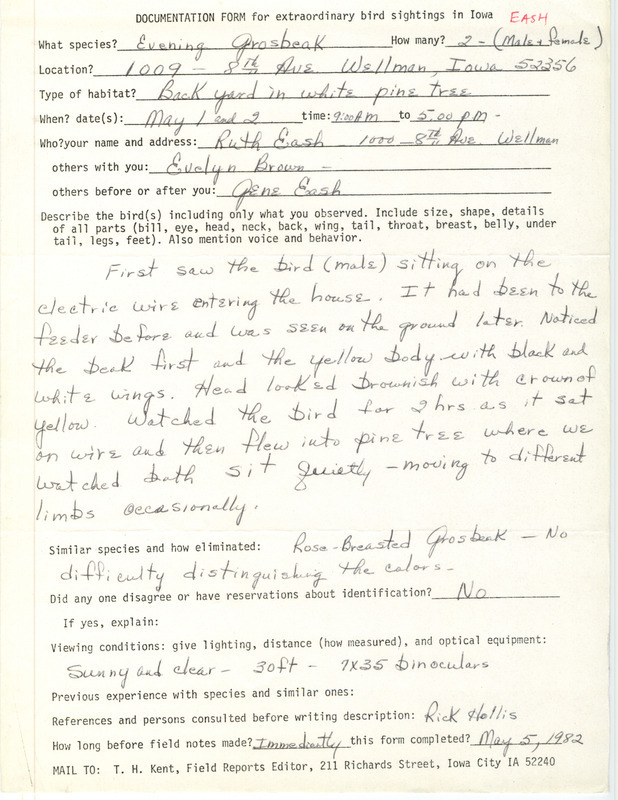 DOCUMENTATION FORM for extraordinary bird sightings in Iowa EASH
What species? Evening Grosbeak How many? 2 - (Male + female)
Location? 1009 - 8th Ave Wellman, Iowa 52356
Type of habitat? Back yard in white pine tree
When? date(s): May 1 and 2 time: 9:00 AM to 5:00 pm -
Who? your name and address: Ruth Eash 1000 - 8th Ave. Wellman
others with you: Evelyn Brown -
others before or after you: Gene Eash
Describe the bird(s) including only what you observed. Include size, shape, details
of all parts (bill, eye, head, neck, back, wing, tail, throat, breast, belly, under
tail, legs, feet). Also mention voice and behavior.
First saw the bird (male) sitting on the
electric wire entering the house. It had been to the
feeder before and was seen on the ground later. Noticed
the beak first and the yellow body with black and
white wings. Head looked brownish with crown of
yellow. Watched the bird for 2 hrs as it sat
on wire and then flew into pine tree where we
watched both sit quietly - moving to different
limbs occasionally.
Similar species and how eliminated: Rose-Breasted Grosbeak - No
difficulty distinguishing the colors -
Did any one disagree or have reservations about identification? No
If yes, explain:
Viewing conditions: give lighting, distance (how measured), and optical equipment:
Sunny and clear - 30ft - 7X35 binoculars
Previous experience with species and similar ones:
References and persons consulted before writing description: Rick Hollis
How long before field notes made? Immediately this form completed? May 5, 1982
MAIL TO: T. H. Kent, Field Reports Editor, 211 Richards Street, Iowa City IA 52240